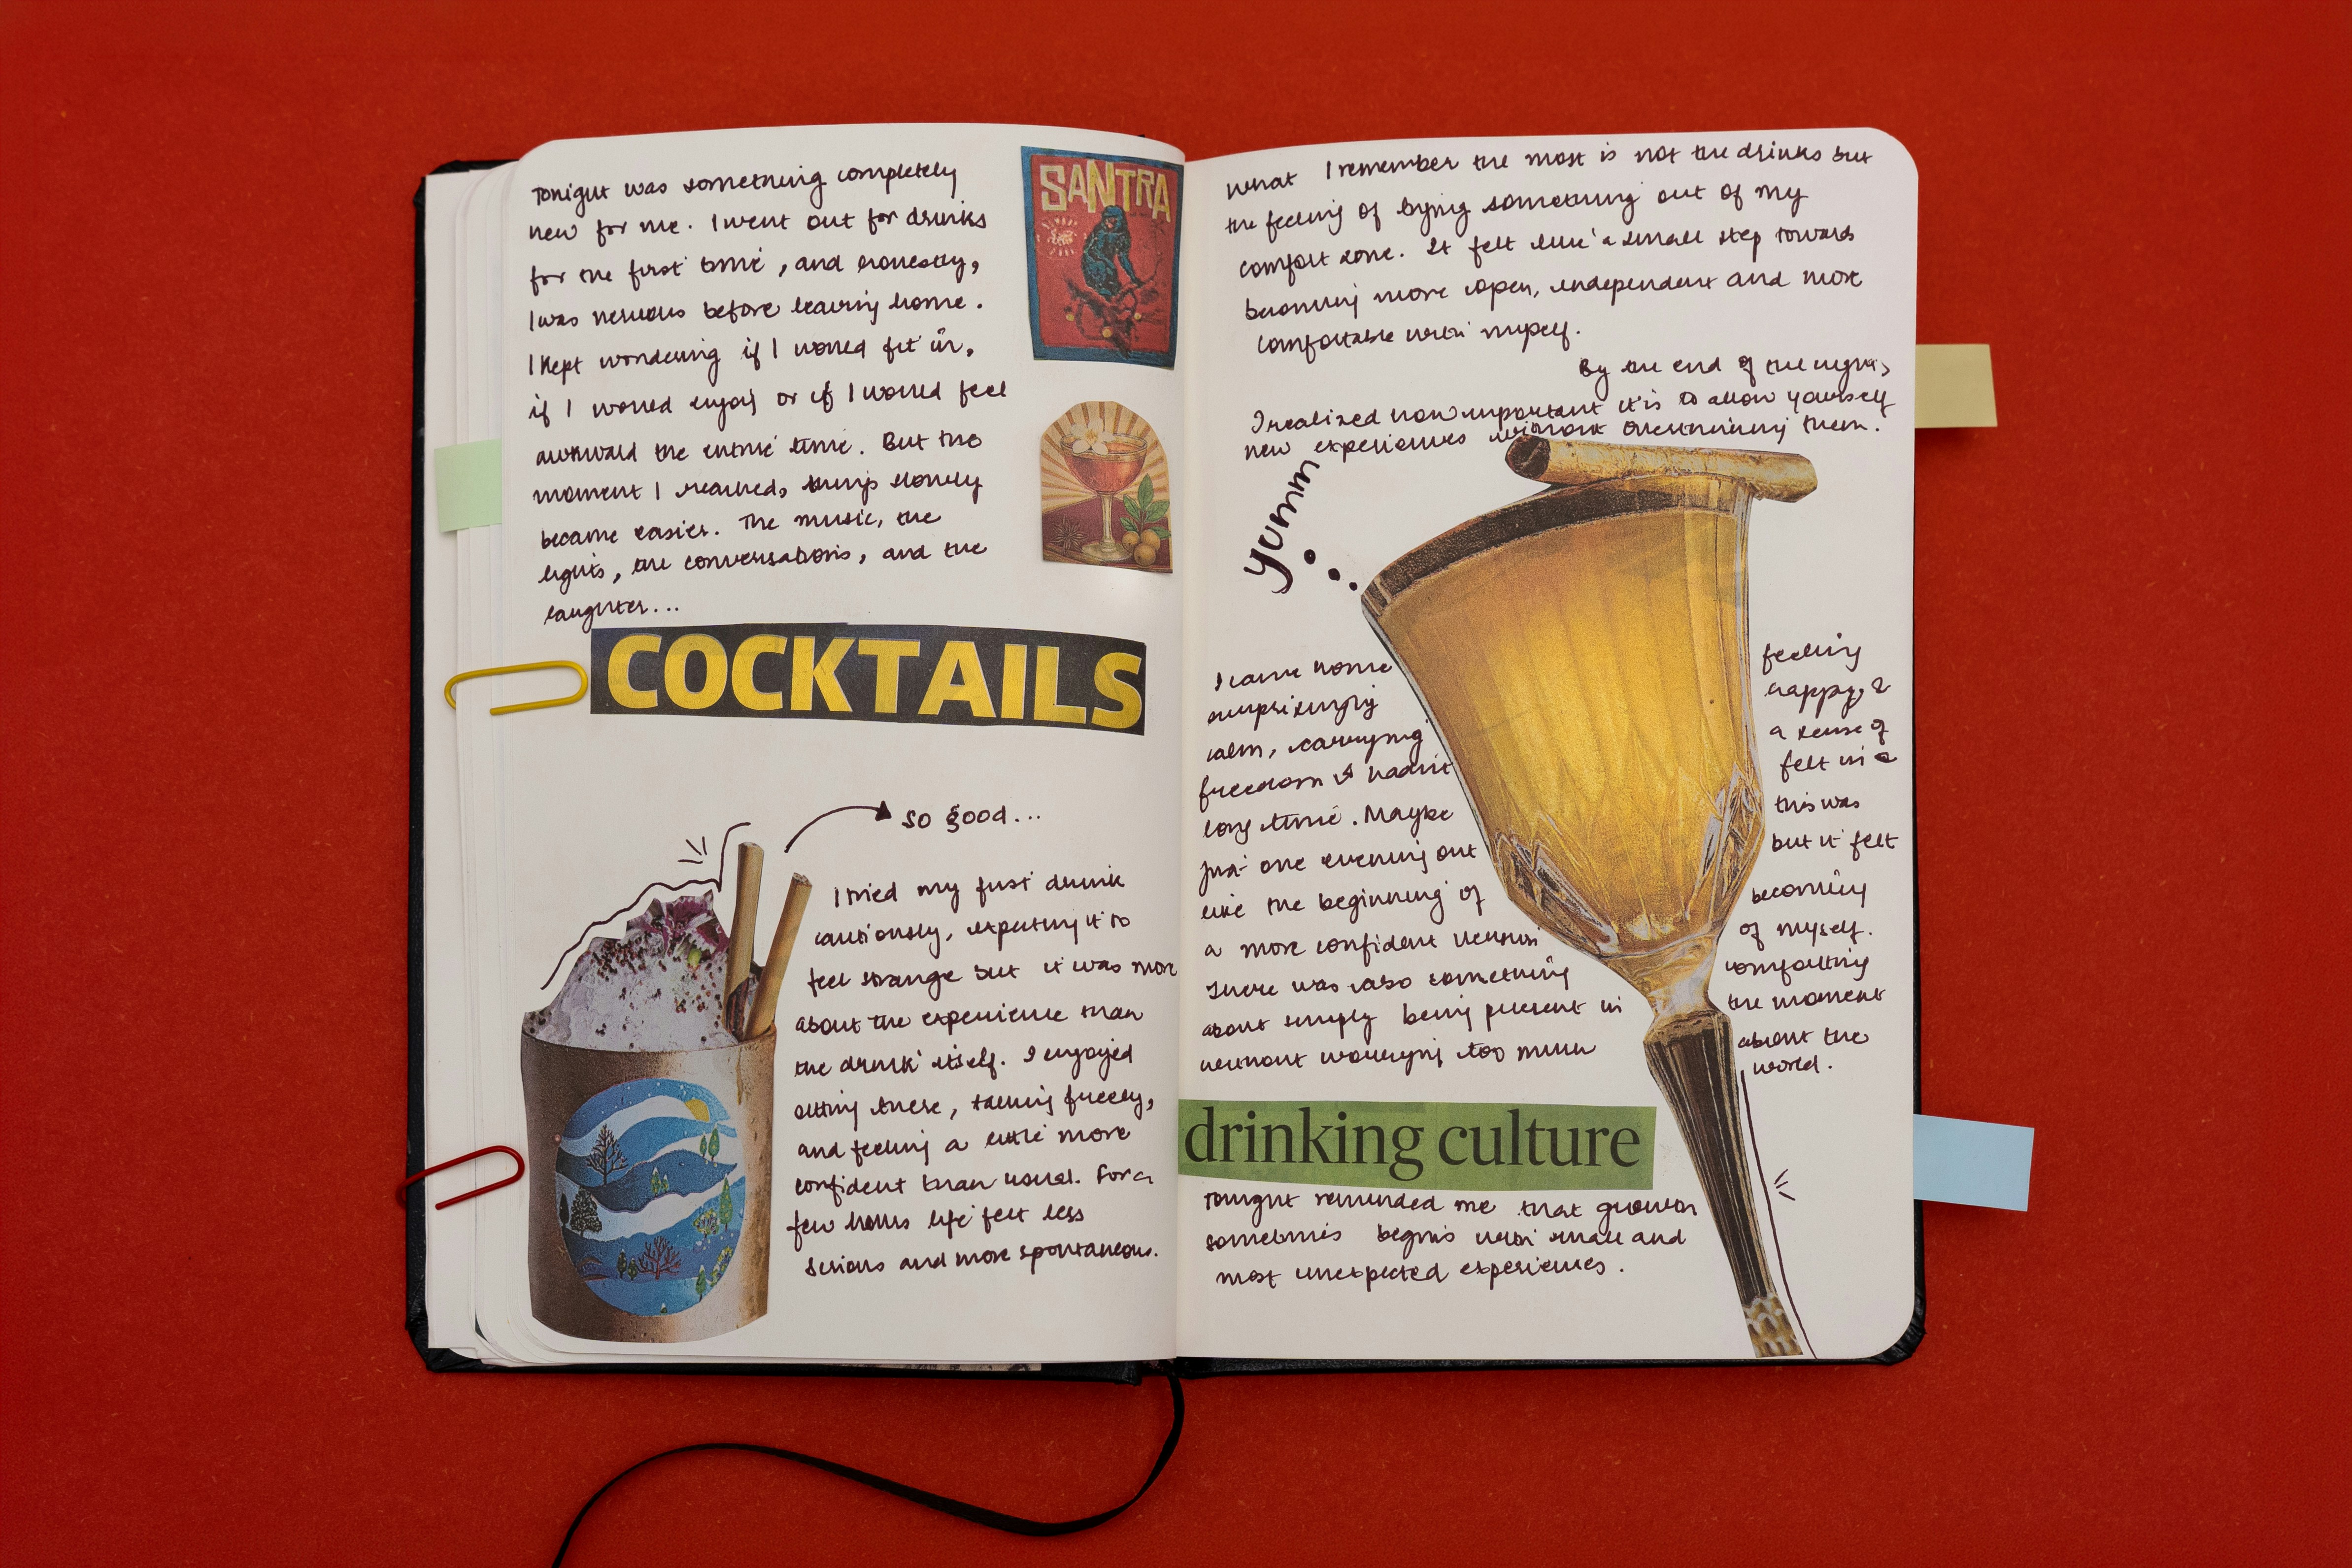 Tonight was something completely
new for me. I went out for drinks
for the first time, and honestly,
I was nervous before leaving home.
I kept wondering if I would fit in,
if I would enjoy or if I would feel
awkward the entire time. But the
moment I reached, things slowly
became easier. The music, the
lights, the conversations, and the
laughter...
SANTRA
COCKTAILS
so good...
I tried my first drink
cautiously, expecting it to
feel strange but it was more
about the experience than
the drink itself. I enjoyed
sitting there, talking freely,
and feeling a little more
confident than usual. For a
few hours life felt less
serious and more spontaneous.
What I remember the most is not the drinks but
the feeling of trying something out of my
comfort zone. It felt like a small step towards
becoming more open, independent and more
comfortable with myself.
By the end of the night,
I realized how important it is to allow yourself
new experiences without overthinking them.
yumm
I came home feeling
surprisingly happy, &
calm, carrying a sense of
freedom I hadn't felt in a
long time. Maybe this was
just one evening out but it felt
like the beginning of becoming
a more confident version of myself.
There was also something comforting
about simply being present in the moment
without worrying too much about the
world.
drinking culture
Tonight reminded me that growth
sometimes begins with small and
most unexpected experiences.